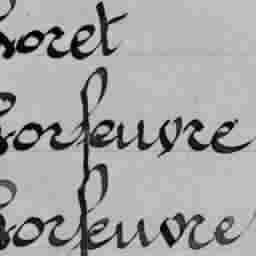 Loret
Lorfeuvre
Lorfeuvre